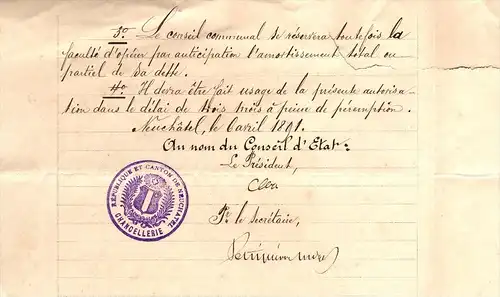 3º. Le conseil communal se réservera toutefois la
faculté d'opérer par anticipation l'amortissement total ou
partiel de sa dette.
4º. Il devra être fait usage de la présente autorisa-
tion dans le délai de trois mois à peine de péremption.
Neuchâtel, le 6 avril 1891.
Au nom du Conseil d'Etat:
Le Président,
Pr. le secrétaire,
RÉPUBLIQUE ET CANTON DE NEUCHATEL
CHANCELLERIE